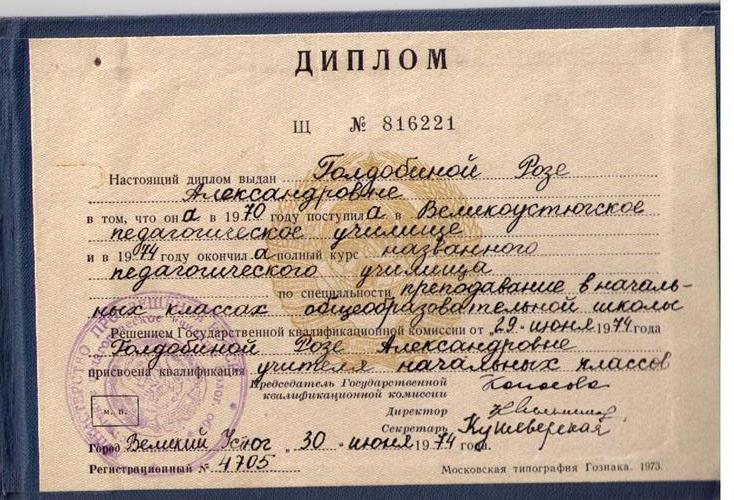 ДИПЛОМ
Щ № 816221
Настоящий диплом выдан Голдобиной Розе
Александровне
в том, что она в 1970 году поступила в Великоустюгское
педагогическое училище
и в 1974 году окончила полный курс названного
педагогического училища
по специальности преподавание в началь-
ных классах общеобразовательной школы
Решением Государственной квалификационной комиссии от „29" июня 1974 года
Голдобиной Розе Александровне
присвоена квалификация учителя начальных классов
Председатель Государственной
квалификационной комиссии
Директор
Секретарь Кушеверская
м. п.
Город Великий Устюг „30" июня 1974 года.
Регистрационный № 4705
Московская типография Гознака. 1973.